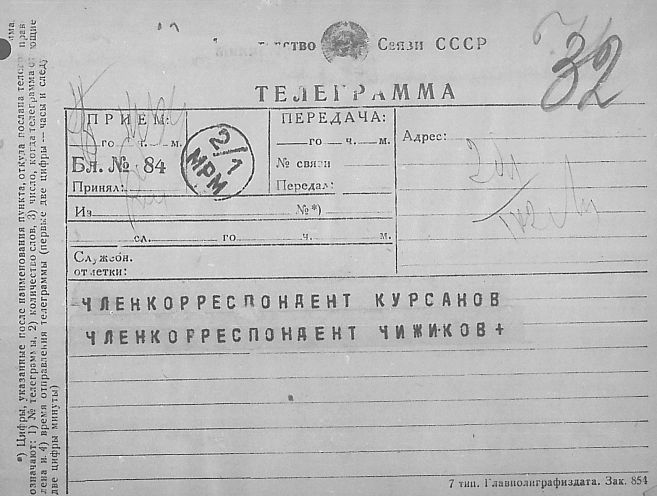 32
ство Связи СССР
ТЕЛЕГРАММА
ПРИЕМ:
го ч. м.
Бл. № 84
Принял:
2/1
МРМ
ПЕРЕДАЧА:
го ч. м.
№ связи
Передал:
Адрес:
Из №*)
сл. го ч. м.
Служебн.
отметки:
ЧЛЕНКОРРЕСПОНДЕНТ КУРСАНОВ
ЧЛЕНКОРРЕСПОНДЕНТ ЧИЖИКОВ+
*) Цифры, указанные после наименования пункта, откуда послана
означают: 1) № телеграммы, 2) количество слов, 3) число, когда телеграмма
и 4) время отправления телеграммы (первые две цифры — часы и
две цифры минуты)
7 тип. Главполиграфиздата. Зак. 854